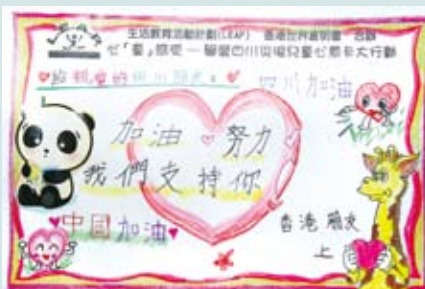 生活教育活動計劃(LEAP) 香港世界宣明會 合辦
心「童」感受—關愛四川災後兒童心意卡大行動
給親愛的四川朋友：
四川加油
加油 努力
我們支持你
中國加油
香港朋友
上